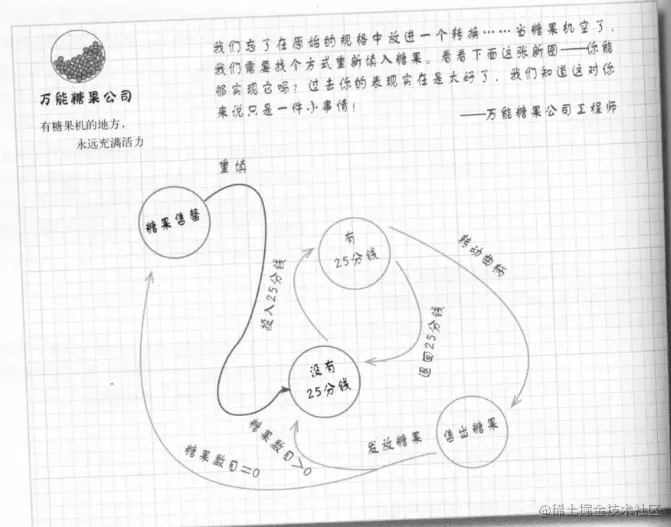 我们忘了在原始的规格中放进一个转换……当糖果机空了，
我们需要找个方式重新填入糖果。看看下面这张新图——你能
够实现它吗？过去你的表现实在是太好了，我们知道这对你
来说只是一件小事情！
——万能糖果公司工程师
万能糖果公司
有糖果机的地方，
永远充满活力
重填
糖果售罄
有
25分钱
转动曲柄
投入25分钱
退回25分钱
没有
25分钱
糖果数目>0
发放糖果
售出糖果
糖果数目=0
@稀土掘金技术社区